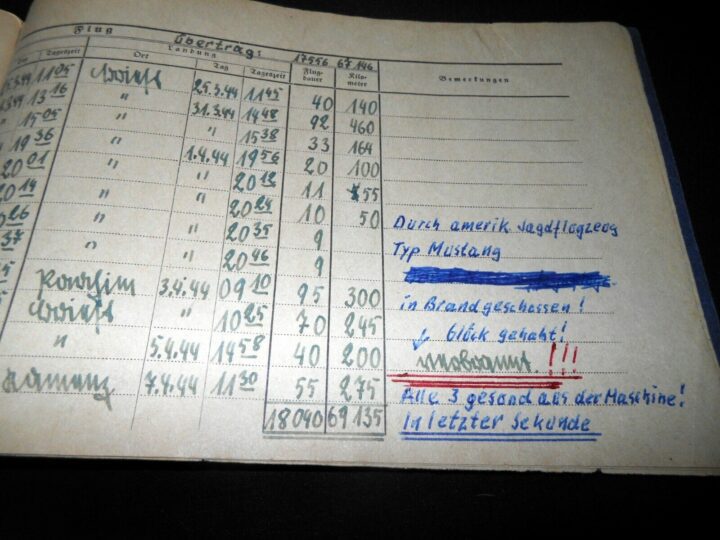 Flug Übertrag: 17556 67146
Landung
Tageszeit Ort Tag Tageszeit Flug-dauer Kilo-meter Bemerkungen
11 05 25.3.44 11 45 40 140
13 16 " 31.3.44 14 48 92 460
" 15 05 " " 15 38 33 164
19 36 " 1.4.44 19 56 20 100
20 01 " " 20 12 11 55
20 14 " " 20 24 10 50 Durch amerik Jagdflugzeug
26 " " 20 35 9 Typ Mustang
37 " " 20 46 9
Parchim 3.4.44 09 10 95 300 in Brand geschossen!
" 10 25 70 245 Glück gehabt!
" 5.4.44 14 58 40 200 verbrannt !!!
Kamenz 7.4.44 11 30 55 275 Alle 3 gesund aus der Maschine!
18040 69135 In letzter Sekunde